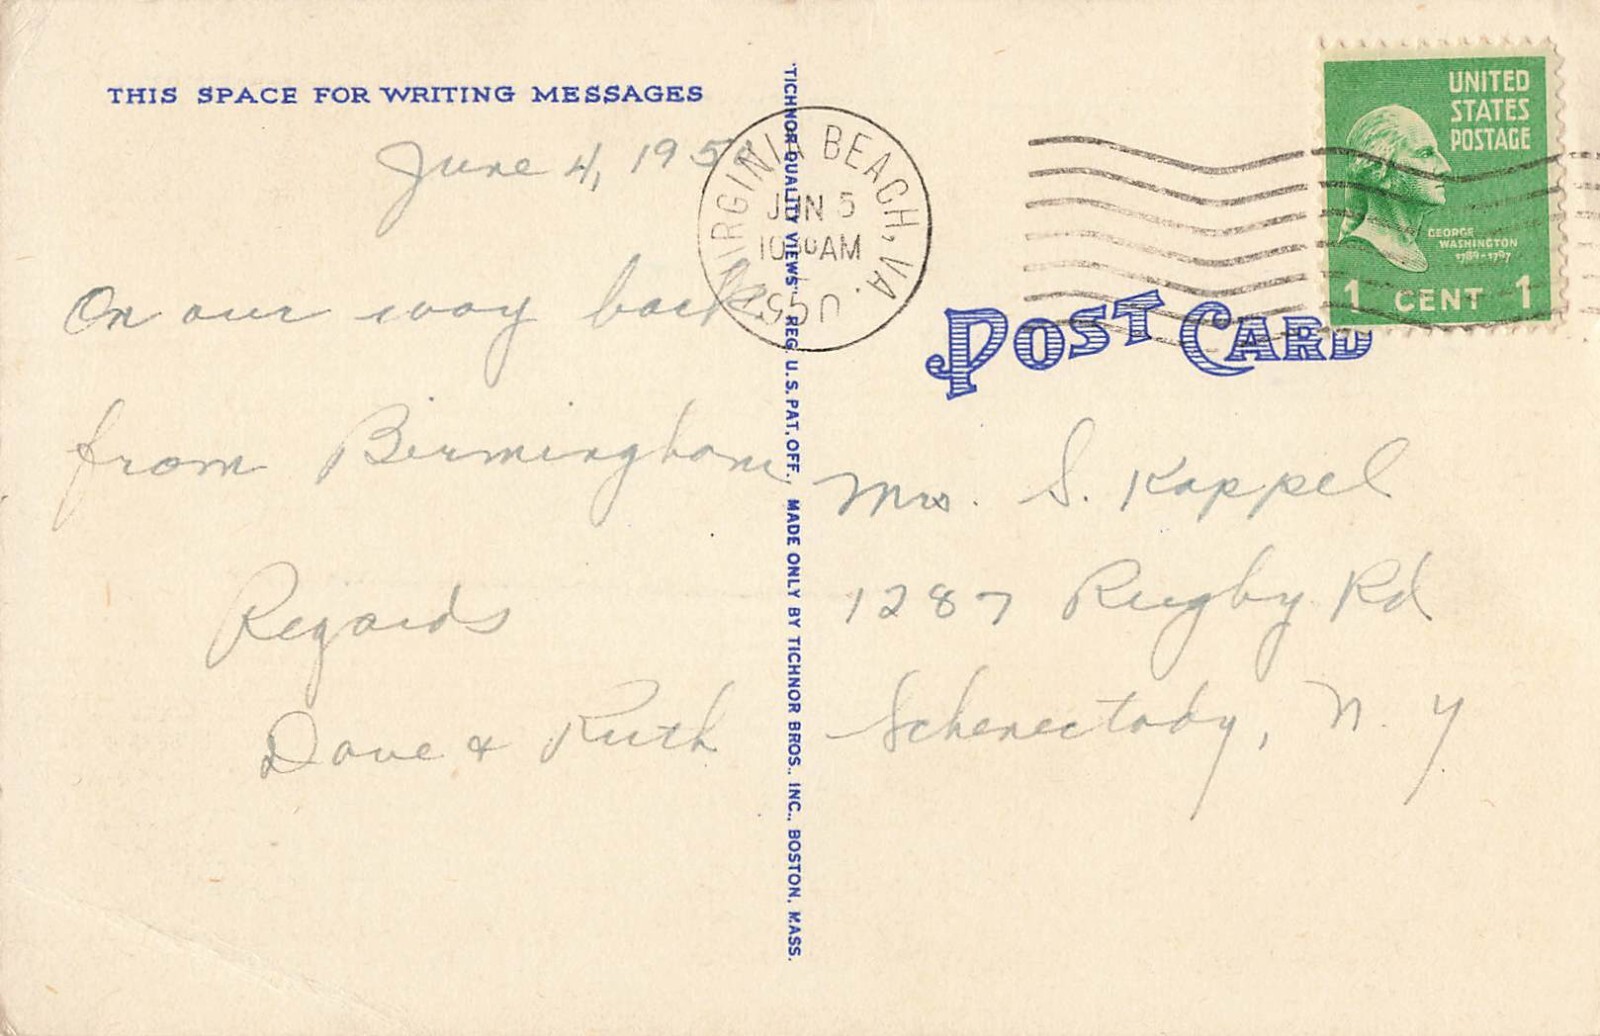 THIS SPACE FOR WRITING MESSAGES
June 4,
On our way back
from Birmingham
Regards
Dave & Ruth
"TICHNOR QUALITY VIEWS" REG. U.S. PAT. OFF., MADE ONLY BY TICHNOR BROS., INC., BOSTON, MASS.
VIRGINIA BEACH, VA.
JUN 5
AM
UNITED
STATES
POSTAGE
GEORGE
WASHINGTON
1789-1797
1 CENT 1
POST CARD
Mrs. S. Kappel
1287 Rugby Rd
Schenectady, N. Y